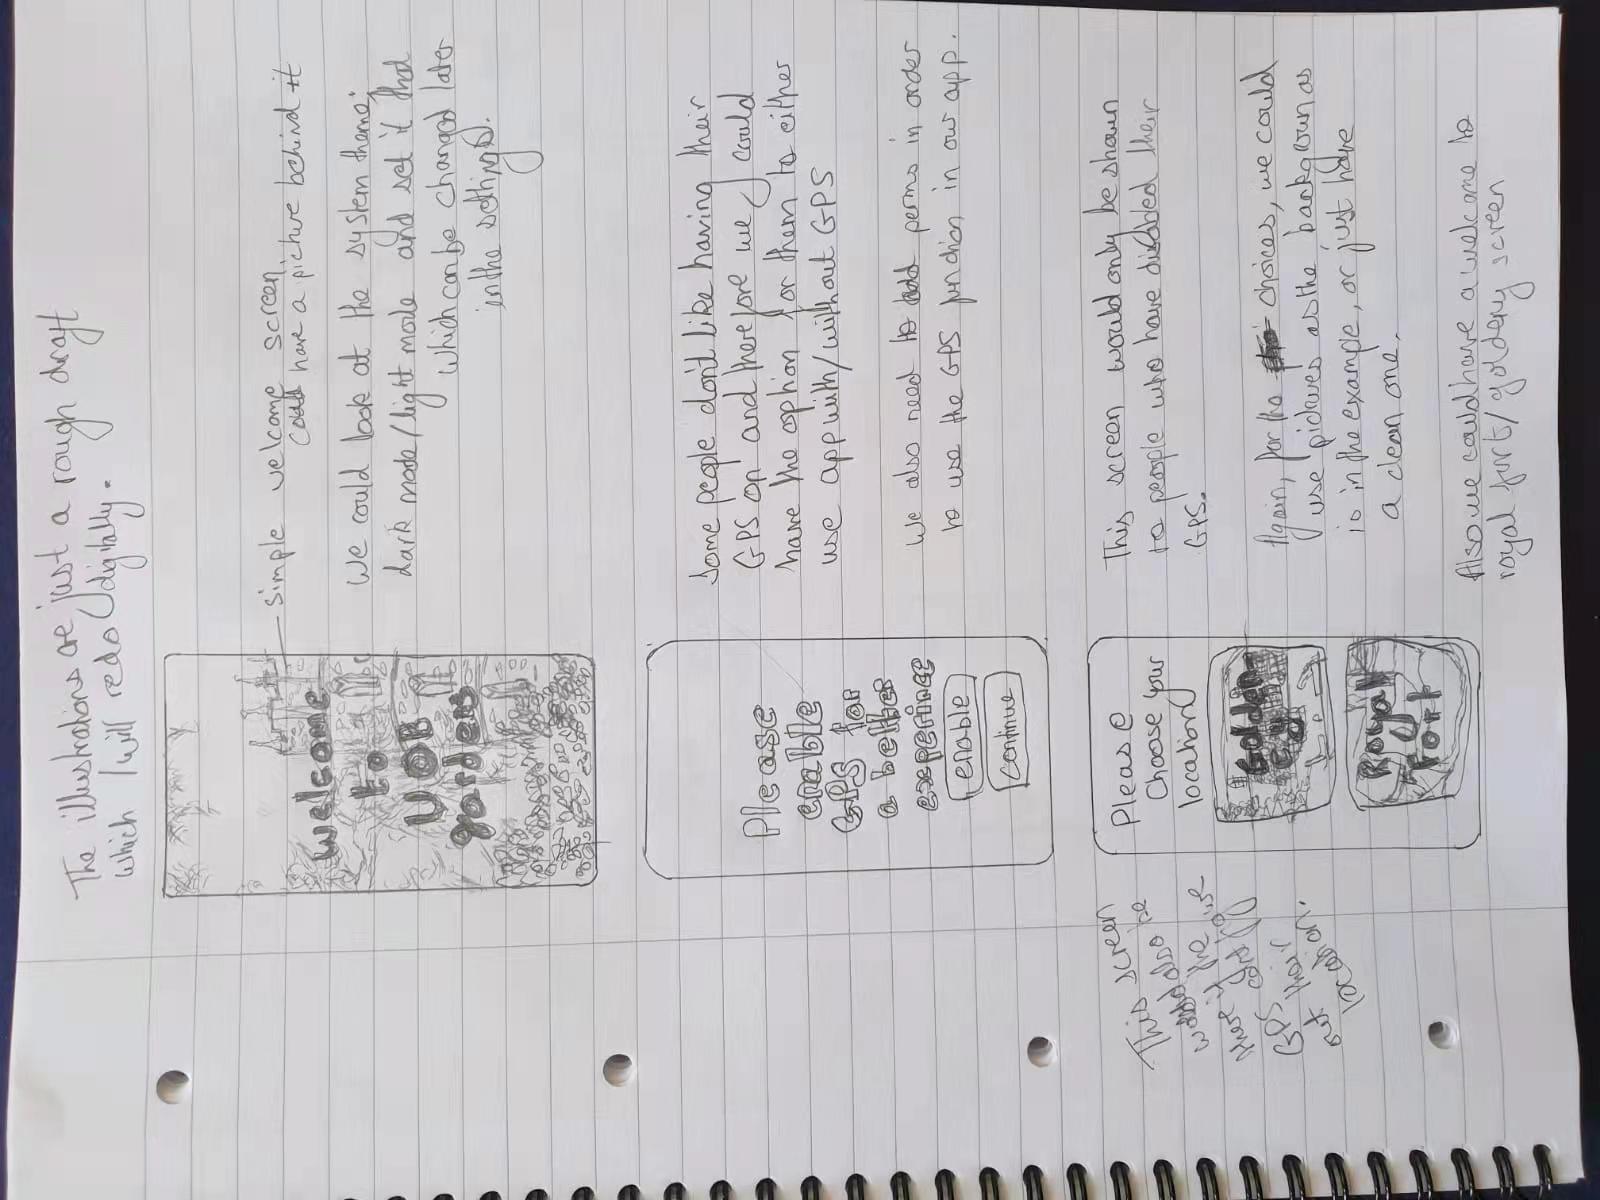 The illustrations are just a rough draft
which I will redo digitally.
Welcome
to
UOB
gardens
simple welcome screen
could have a picture behind it
We could look at the system theme:
dark mode/light mode and set it that
which can be changed later
in the settings.
Please
enable
GPS for
a better
experience
enable
continue
Some people don't like having their
GPS on and therefore we could
have the option for them to either
use app with/without GPS
We also need to add perms in order
to use the GPS function in our app.
This screen
would also be
GPS
Please
Choose your
location
Golden
Royal
Fort
This screen would only be shown
to people who have disabled their
GPS.
Again, for the choices, we could
use pictures as the background as
is in the example, or just have
a clean one.
Also we could have a welcome to
royal fort/goldeny screen